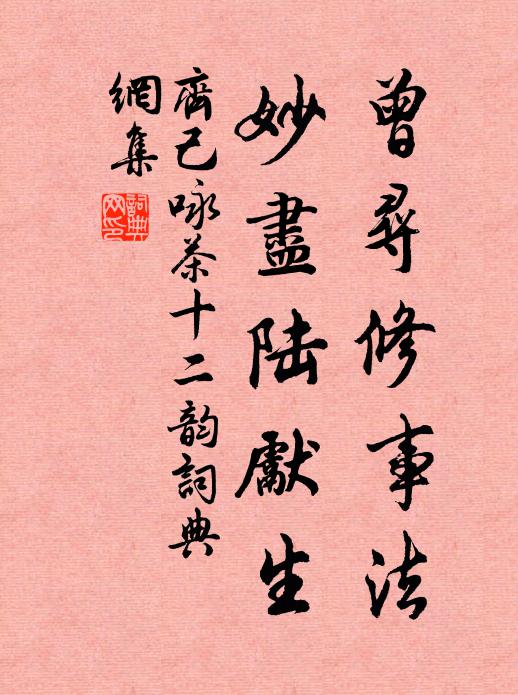 曾尋修事法
妙盡陆獻生
齊己咏茶十二韵詞典
網集
詞典
网印